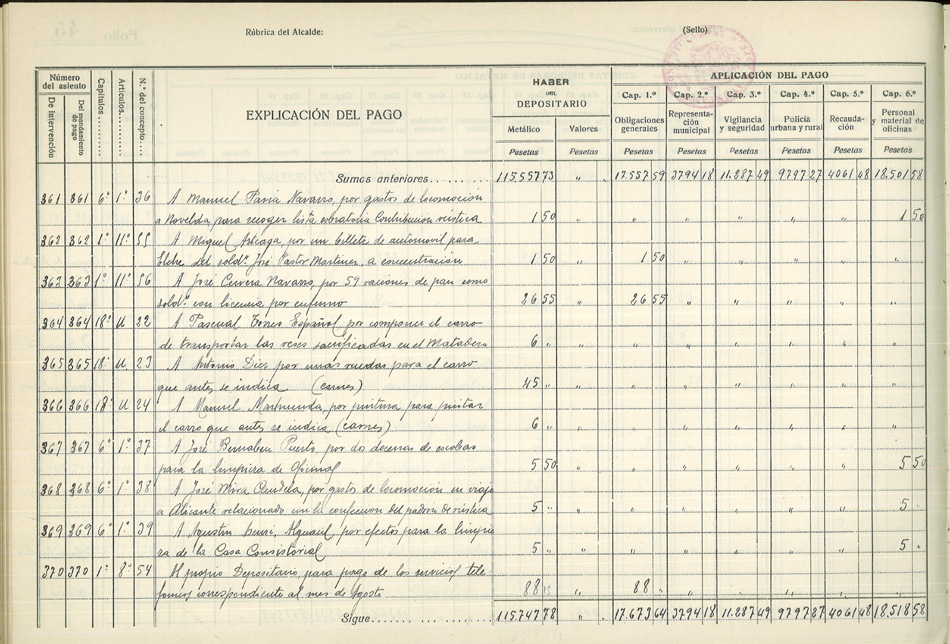 Rúbrica del Alcalde:
(Sello)
Número del asiento
De intervención
Del mandamiento de pago
Capítulos
Artículos
N.º del concepto
EXPLICACIÓN DEL PAGO
HABER DEL DEPOSITARIO
Metálico
Valores
Pesetas
Pesetas
APLICACIÓN DEL PAGO
Cap. 1.º Cap. 2.º Cap. 3.º Cap. 4.º Cap. 5.º Cap. 6.º
Obligaciones generales
Representación municipal
Vigilancia y seguridad
Policía urbana y rural
Recaudación
Personal y material de oficinas
Pesetas Pesetas Pesetas Pesetas Pesetas Pesetas
Sumas anteriores 115.557 73 " " 17.557 59 3794 18 11.287 49 9797 27 4061 48 18.501 58
361 361 6º 1º 36 A Manuel Navarro, por gastos de locomoción
a Novelda, para recoger lista cobratoria Contribución rústica 1 50 " " " " " " 1 50
362 362 1º 11º 55 A Miguel Arteaga, por un billete de automovil para
Elche del sold.º José Pastor Martinez, a concentración 1 50 " 1 50 " " " " "
363 363 1º 11º 56 A José Cervera Navarro, por 59 raciones de pan como
sold.º con licencia por enfermo 26 55 " 26 55 " " " " "
364 364 18º U 22 A Pascual Torres Español, por componer el carro
de transportar las reses sacrificadas en el Matadero 6 " " " " " " " "
365 365 18º U 23 A Antonio Diez por unas ruedas para el carro
que antes se indica (carnes) 45 " " " " " " " "
366 366 18º U 24 A Manuel por pintura para pintar
el carro que antes se indica (carnes) 6 " " " " " " " "
367 367 6º 1º 37 A José Bernabeu Puerto, por dos docenas de escobas
para la limpieza de 5 50 " " " " " " 5 50
368 368 6º 1º 38 A José Mira Candela, por gastos de locomoción en viaje
a Alicante relacionado con la confección del padron de rústica 5 " " " " " " " 5 "
369 369 6º 1º 39 A Agustin Alguacil, por efectos para la limpie
za de la Casa Consistorial 5 " " " " " " " 5 "
370 370 1º 8º 54 Al propio Depositario, para pago de los servicios tele
fonicos correspondiente al mes de Agosto 88 " " 88 "
Sigue 115.747 78 " " 17.673 64 3794 18 11.287 49 9797 27 4061 48 18.518 58